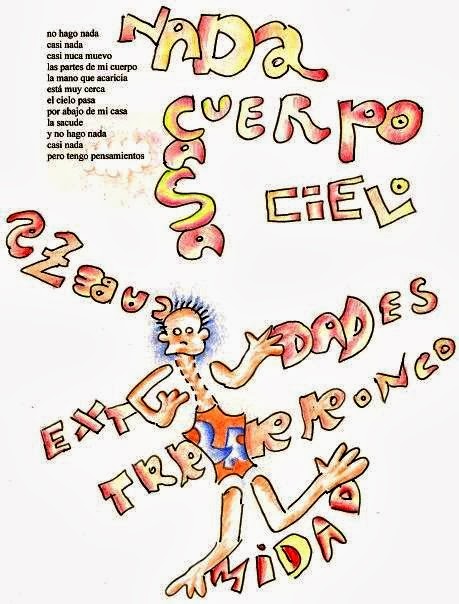 no hago nada
casi nada
casi nuca muevo
las partes de mi cuerpo
la mano que acaricia
está muy cerca
el cielo pasa
por abajo de mi casa
la sacude
y no hago nada
casi nada
pero tengo pensamientos
NADA
CUERPO
CaSa
CiELO
DADES
EXT
TRR
RRONCO
MIDAD